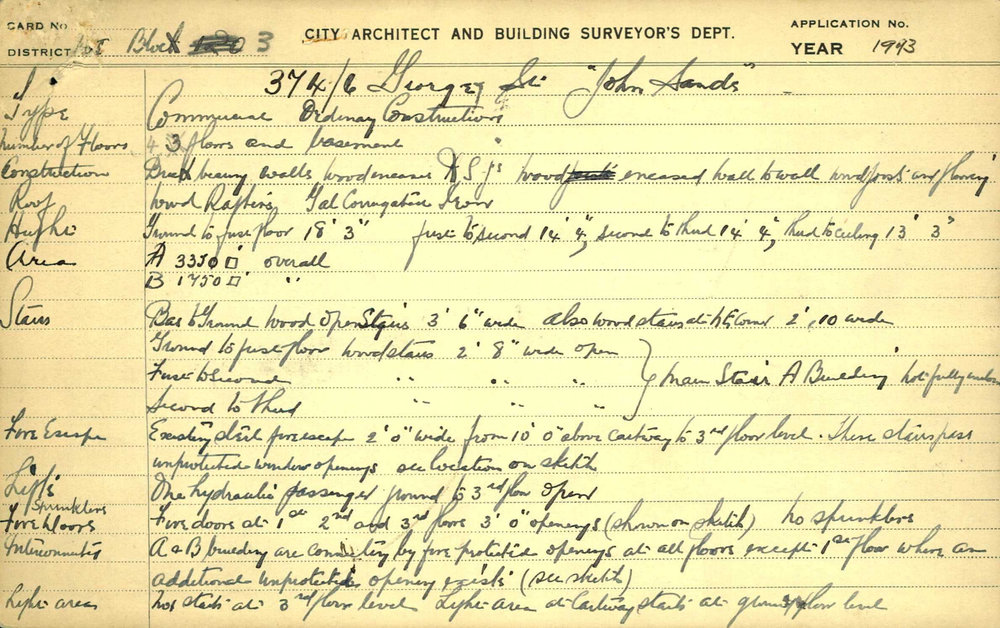 CARD No.
DISTRICT Block 3 CITY ARCHITECT AND BUILDING SURVEYOR'S DEPT. APPLICATION No.
YEAR 1943
374/6 George St "John Sands"
Type Commercial Ordinary Construction
Number of Floors 3 floors and basement
Construction Brick bearing walls wood encased wood encased wall to wall wood joists and flooring
Roof Wood Rafters Gal Corrugated Iron
Height Ground to first floor 18' 3" first to second 14' 4", second to third 14' 4", third to ceiling 13' 3"
Area A 3350 □' overall
B 1750 □' "
Stairs Bas to Ground wood open Stairs 3' 6" wide also wood stairs at corner 2', 10 wide
Ground to first floor wood stairs 2' 8" wide open
First to Second " " " } Main Stair A Building not fully
Second to third " " "
Fire Escape Existing steel fire escape 2' 0" wide from 10' 0" above cartway to 3rd floor level. These stairs pass
unprotected window openings see location on sketch
Lifts One hydraulic passenger ground to 3rd floor open
Sprinklers
Fire Doors Fire doors at 1st 2nd and 3rd floors 3' 0" openings (shown on sketch) no sprinklers
A & B building are by fire protected openings at all floors except 1st floor where an
additional unprotected opening exists (see sketch)
Light areas starts at 3rd floor level Light area at Cartway starts at ground floor level